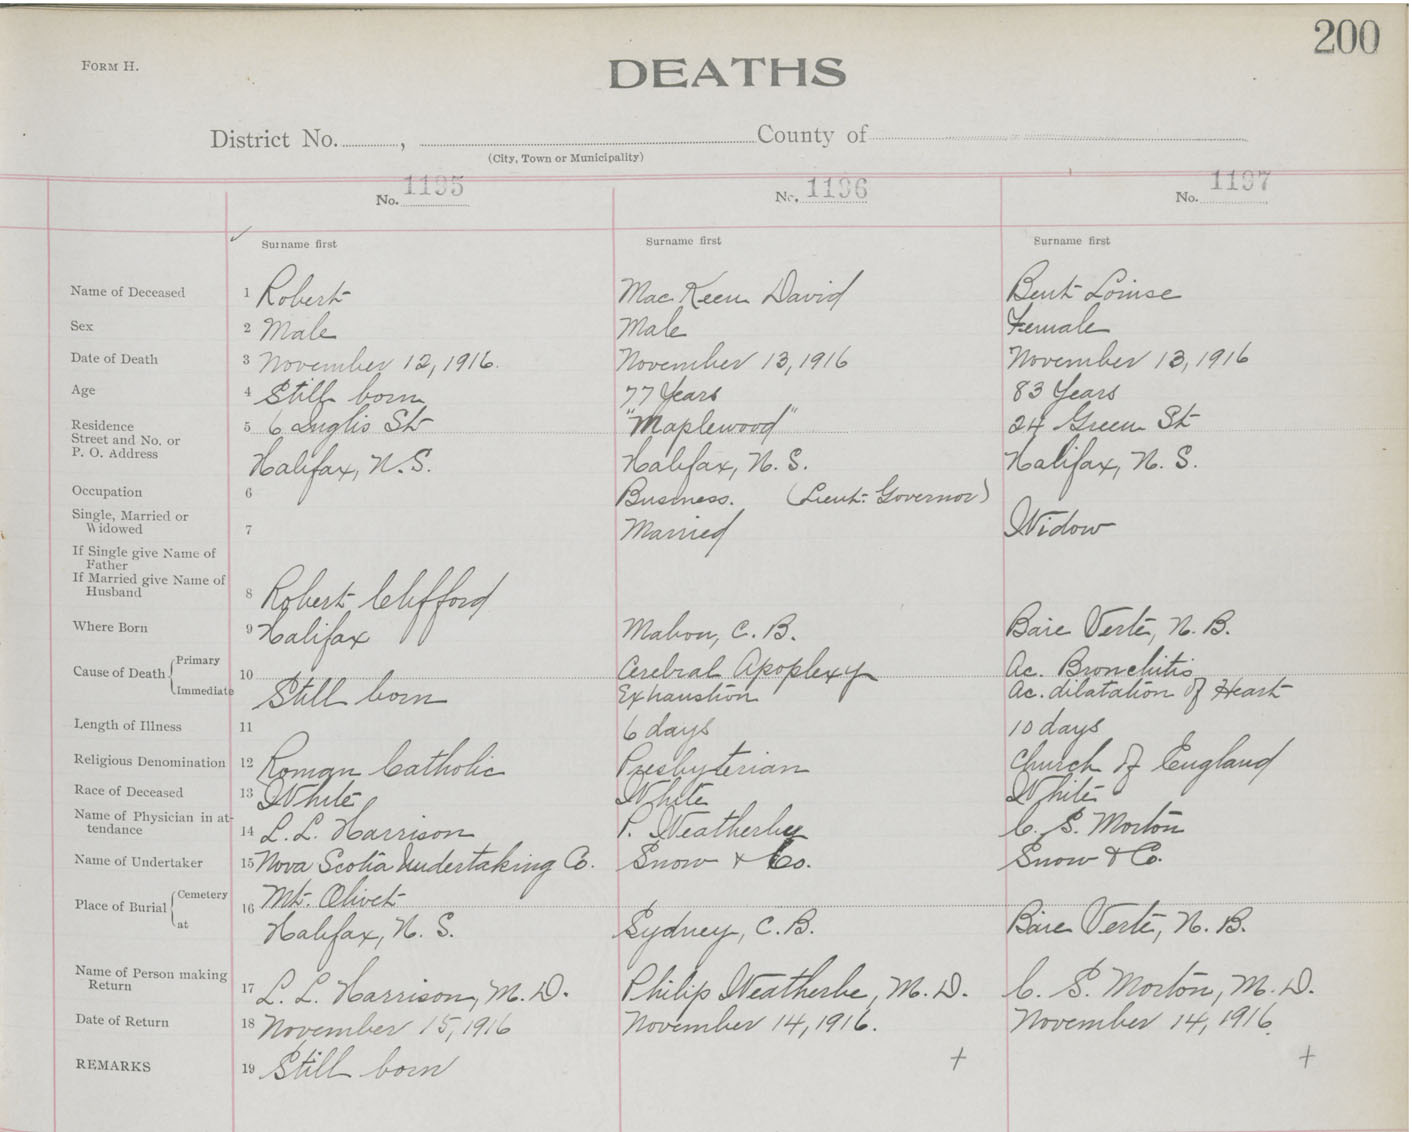 200
FORM H.
DEATHS
District No. , County of
(City, Town or Municipality)
No. 1195 No. 1196 No. 1197
Surname first Surname first Surname first
Name of Deceased 1 Robert Mac Keen David Bent Louise
Sex 2 Male Male Female
Date of Death 3 November 12, 1916. November 13, 1916 November 13, 1916
Age 4 Still born 77 Years 83 Years
Residence
Street and No. or 5 6 Inglis St "Maplewood" 24 Green St
P. O. Address Halifax, N.S. Halifax, N. S. Halifax, N. S.
Occupation 6 Business. (Lieut. Governor)
Single, Married or
Widowed 7 Married Widow
If Single give Name of
Father
If Married give Name of
Husband 8 Robert Clifford
Where Born 9 Halifax Mabou, C. B. Baie Verte, N. B.
Cause of Death Primary 10 Cerebral Apoplexy Ac. Bronchitis
Immediate Still born Exhaustion Ac. dilatation of Heart
Length of Illness 11 6 days 10 days
Religious Denomination 12 Roman Catholic Presbyterian Church of England
Race of Deceased 13 White White White
Name of Physician in at-
tendance 14 L. L. Harrison P. Weatherbe C. S. Morton
Name of Undertaker 15 Nova Scotia Undertaking Co. Snow & Co. Snow & Co.
Place of Burial Cemetery 16 Mt. Olivet
at Halifax, N. S. Sydney, C. B. Baie Verte, N. B.
Name of Person making
Return 17 L. L. Harrison, M. D. Philip Weatherbe, M. D. C. S. Morton, M. D.
Date of Return 18 November 15, 1916 November 14, 1916. November 14, 1916.
REMARKS 19 Still born + +